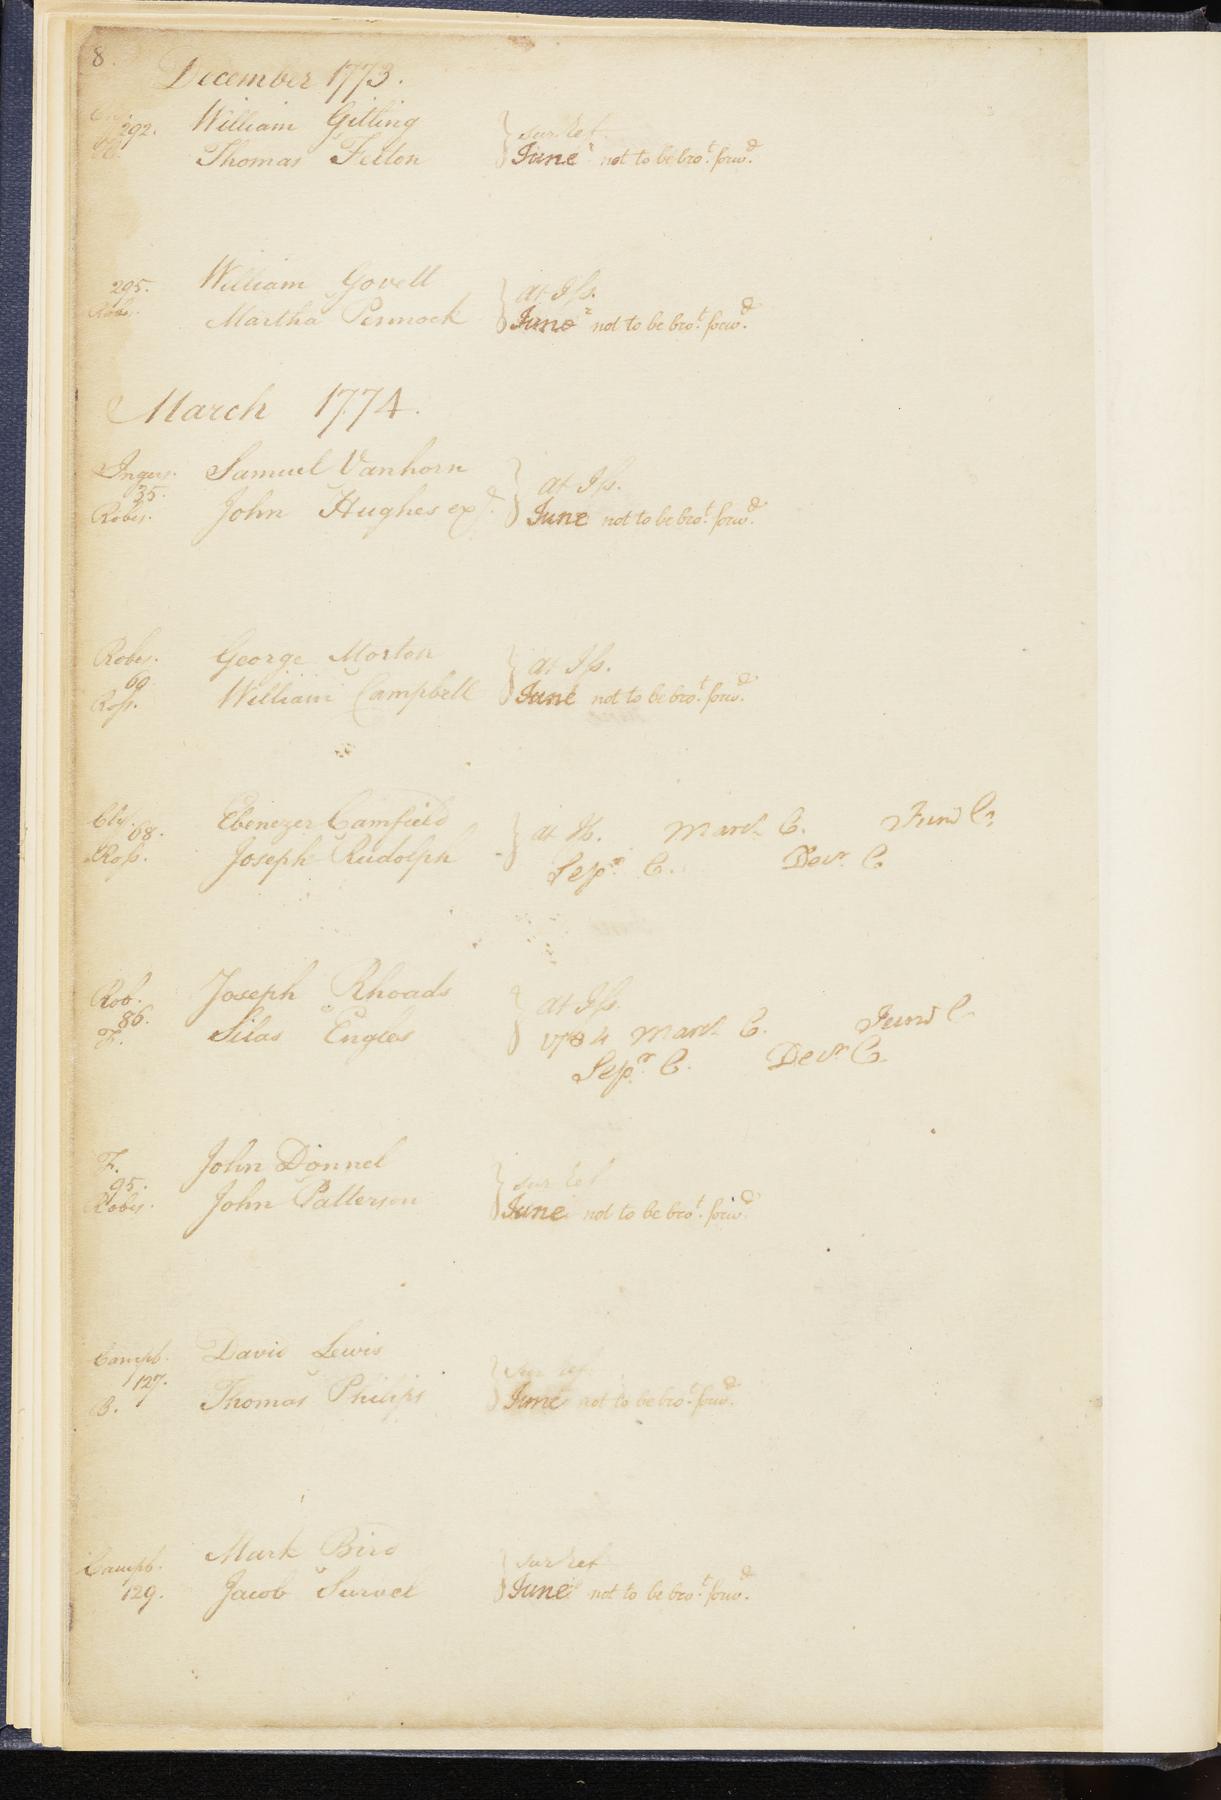 8.
December 1773.
292. William Gilling } sur Ref.
Thomas Felton } June not to be bro.t forw.d
295. William Govett } at Iss.
Robes. Martha Pennock } June not to be bro.t forw.d
March 1774.
Ingers. Samuel Vanhorn } at Iss.
35.
Robes. John Hughes ex.r } June not to be bro.t forw.d
Robes. George Morton } at Iss.
60.
Ross. William Campbell } June not to be bro.t forw.d
68. Ebenezer Camfield } at Iss. March C. June C.
Ross. Joseph Rudolph } Sep.r C. Decr. C.
Rob. Joseph Rhoads } at Iss.
86.
F. Silas Engles } 1784 March C. June C.
Sep.r C. Decr. C.
F. John Donnel } sur Ref
95.
Robes. John Patterson } June not to be bro.t forw.d
Campb. David Lewis } sur Ref.
127.
B. Thomas Philips } June not to be bro.t forw.d
Campb. Mark Bird } sur Ref
129. Jacob Survel } June not to be bro.t forw.d